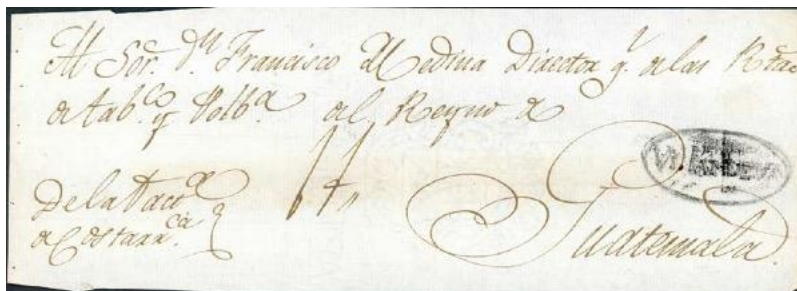 Al Sor. Dn. Francisco Medina Director gl. de las Rtas
de tabco. y Polba. del Reyno de
De la Factª.
de Costarrcia.
Guatemala